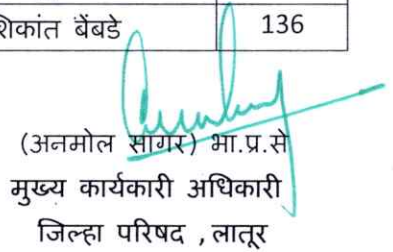 शिकांत बेंबडे 136
(अनमोल सागर) भा.प्र.से
मुख्य कार्यकारी अधिकारी
जिल्हा परिषद ,लातूर